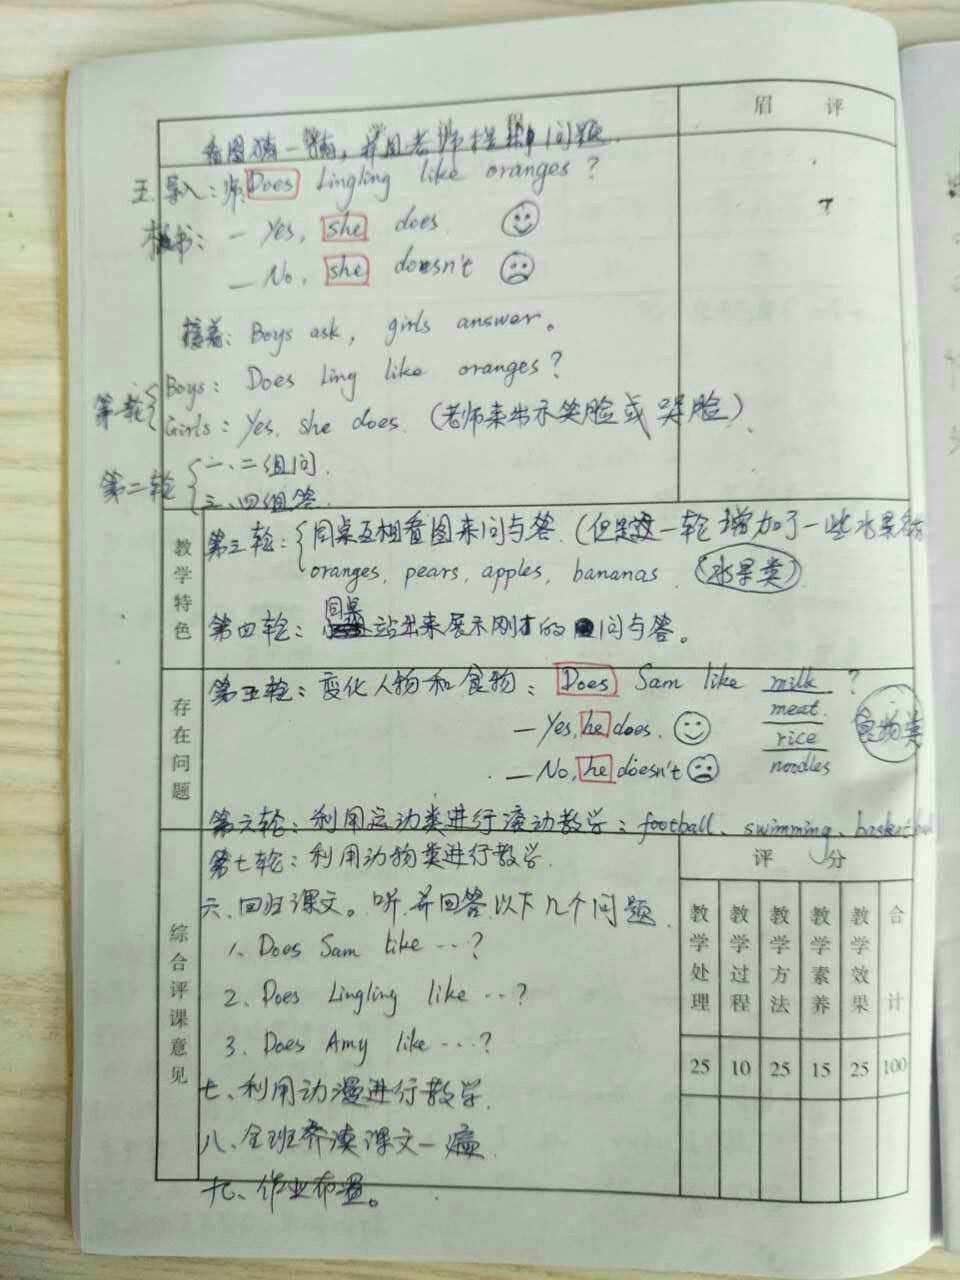 眉 评
看图猜一猜，并回老师提出问题.
五.导入：师: Does Lingling like oranges?
板书： — Yes, she does.
— No, she doesn't
接着：Boys ask, girls answer。
第一轮 Boys: Does Ling like oranges?
Girls: Yes, she does. (老师来出示笑脸或哭脸).
第二轮 一、二组问.
三、四组答.
教学特色
第三轮：同桌互相看图来问与答.(但是这一轮增加了一些水果名称
oranges, pears, apples, bananas. (水果类)
第四轮：同桌站出来展示刚才的问与答。
存在问题
第五轮：变化人物和食物： Does Sam like milk ?
— Yes, he does. meat. 食物类
rice
— No, he doesn't noodles
第六轮：利用运动类进行滚动教学：football、swimming、basketball
综合评课意见
第七轮：利用动物类进行教学.
评 分
六.回归课文。听.并回答以下几个问题.
1. Does Sam like ...?
2. Does Lingling like ...?
3. Does Amy like ...?
教学处理 教学过程 教学方法 教学素养 教学效果 合计
25 10 25 15 25 100
七、利用动漫进行教学.
八、全班齐读课文一遍
九、作业布置。